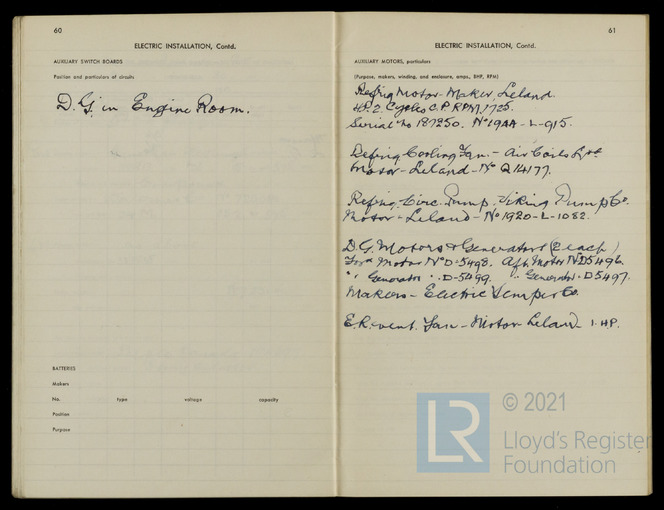 60
ELECTRIC INSTALLATION, Contd.
AUXILIARY SWITCH BOARDS
Position and particulars of circuits
D.G. in Engine Room.
BATTERIES
Makers
No. type voltage capacity
Position
Purpose
61
ELECTRIC INSTALLATION, Contd.
AUXILIARY MOTORS, particulars
(Purpose, makers, winding, and enclosure, amps., BHP, RPM)
Refrig Motor - Maker Leland.
H.P. 2. Cycles C.P. RPM. 1725.
Serial No 187250. No 19AA-L-915.
Refrig Cooling Fan. - Air Coils Ltd
Motor - Leland - No Q14177.
Refrig. Circ. Pump. Viking Pump Co.
Motor - Leland - No 1920-L-1082.
D.G. Motors & Generators (2 each)
Ford Motor No D-5498. Aft. Motor No D5496.
" Generator " D-5499. " Generator " D5497.
Makers - Electric Co.
E.R. vent. Fan - Motor Leland 1. HP.
LR © 2021
Lloyd's Register
Foundation